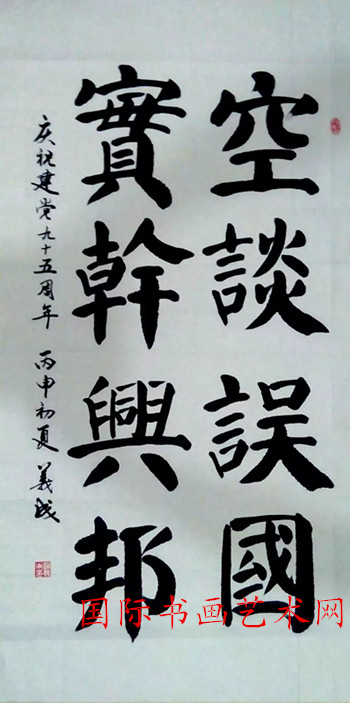 空談誤國
實幹興邦
庆祝建党九十五周年 丙申初夏 義成
国际书画艺术网